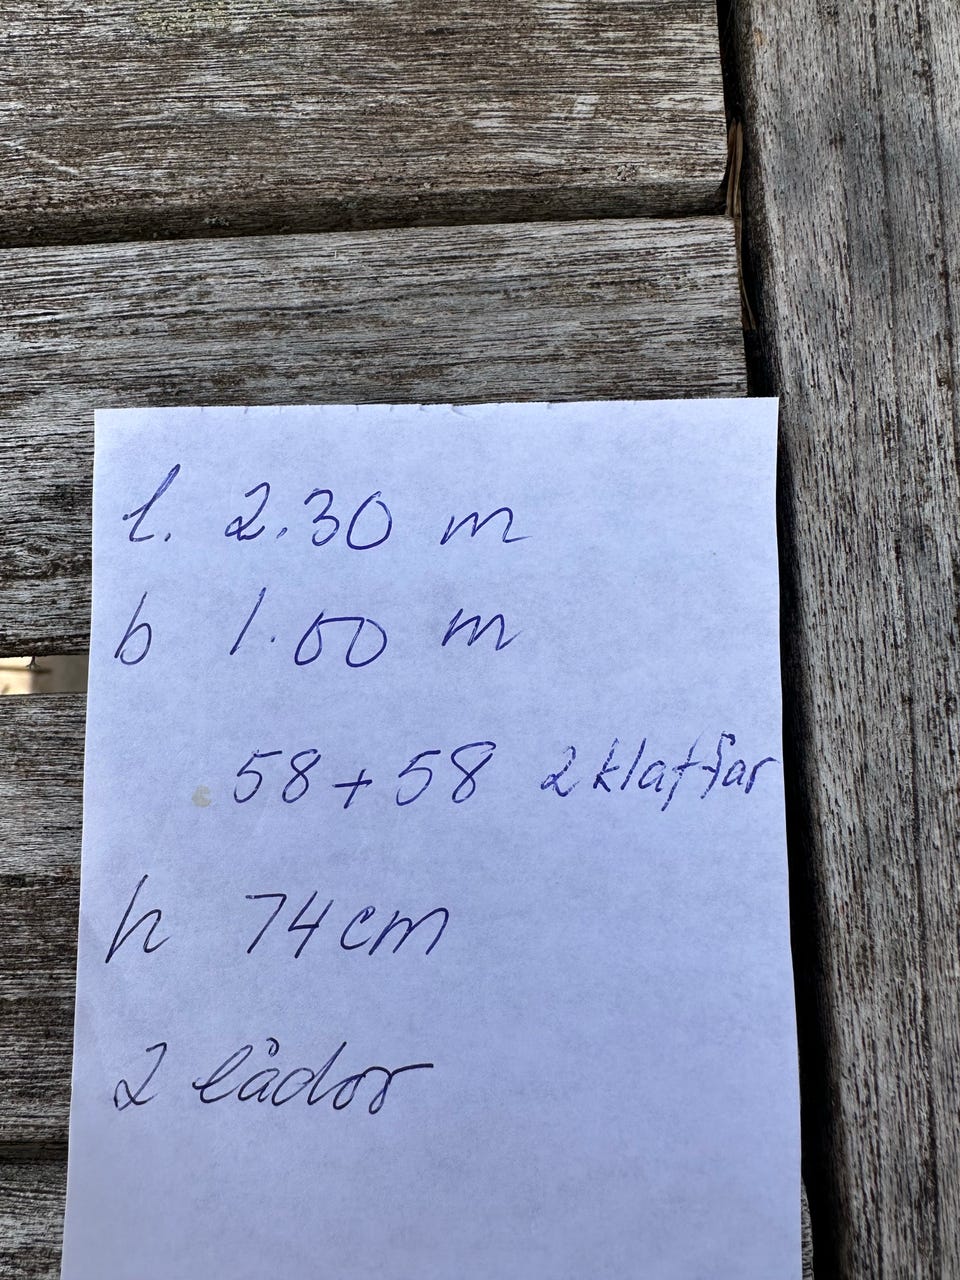 l. 2.30 m
b 1.00 m
58+58 2 klaffar
h 74 cm
2 lådor